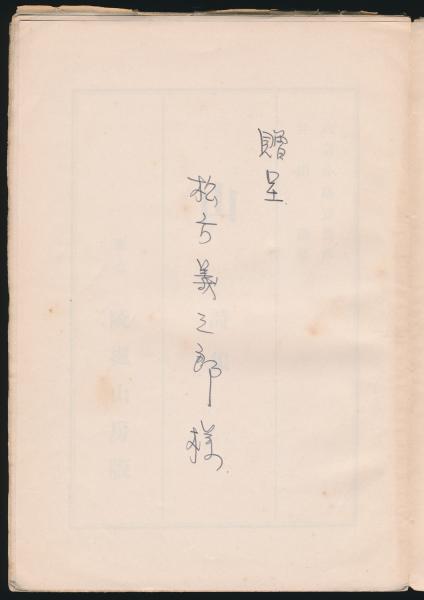 贈呈
松方義之郎様